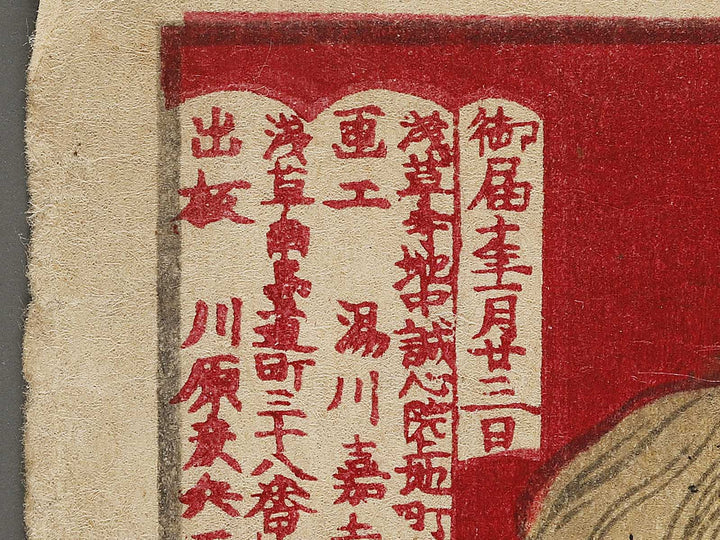 御届 月廿三日
浅草寺地中誠心 上地町
画工 湯川嘉
浅草南馬道町三十八番
出板 川原